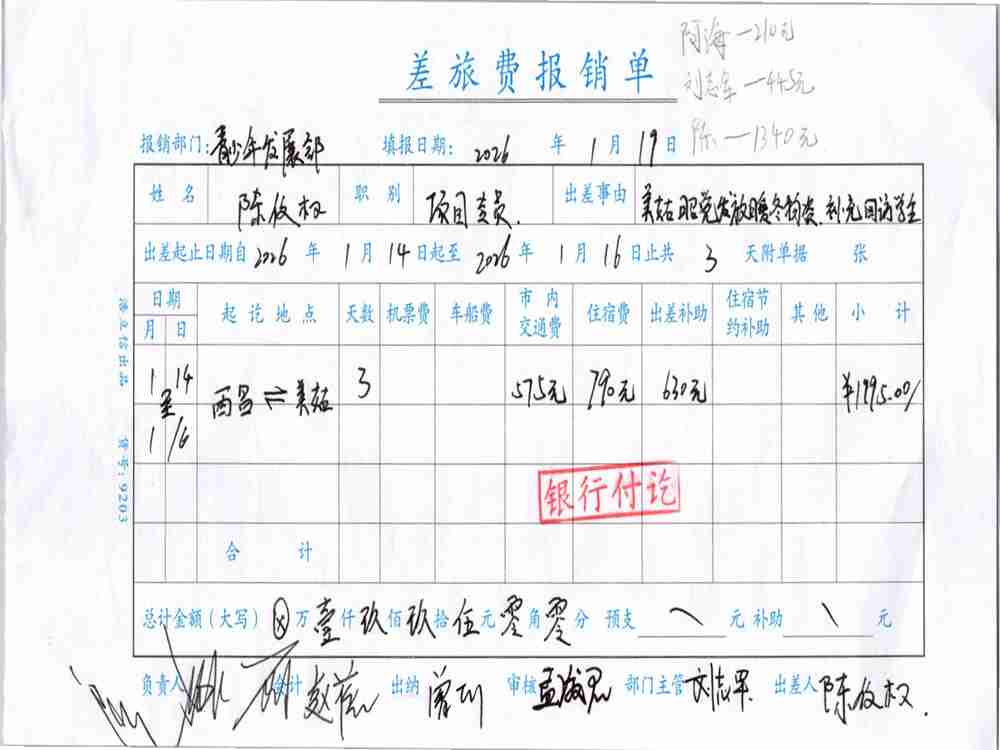 阿海—210元
差旅费报销单
刘志军—445元
陈—1340元
报销部门:青少年发展部 填报日期: 2026 年 1 月 19 日
姓 名 陈 权 职 别 项目专员. 出差事由 美姑 昭觉发放暖冬物资、补充回访学生
出差起止日期自 2026 年 1 月 14 日起至 2026 年 1 月 16 日止共 3 天附单据 张
日期 起 讫 地 点 天数 机票费 车船费 市 内 交通费 住宿费 出差补助 住宿节 约补助 其 他 小 计
月 日
1 14 至 1 16 西昌⇌美姑 3 575元 790元 630元 ¥1995.00/
银行付讫
合 计
总计金额(大写) ⊗ 万 壹 仟 玖 佰 玖 拾 伍 元 零 角 零 分 预支 \ 元 补助 \ 元
负责人 会计 赵 出纳 曾 审核 孟 部门主管 刘志军 出差人 陈 权.
货号:9203